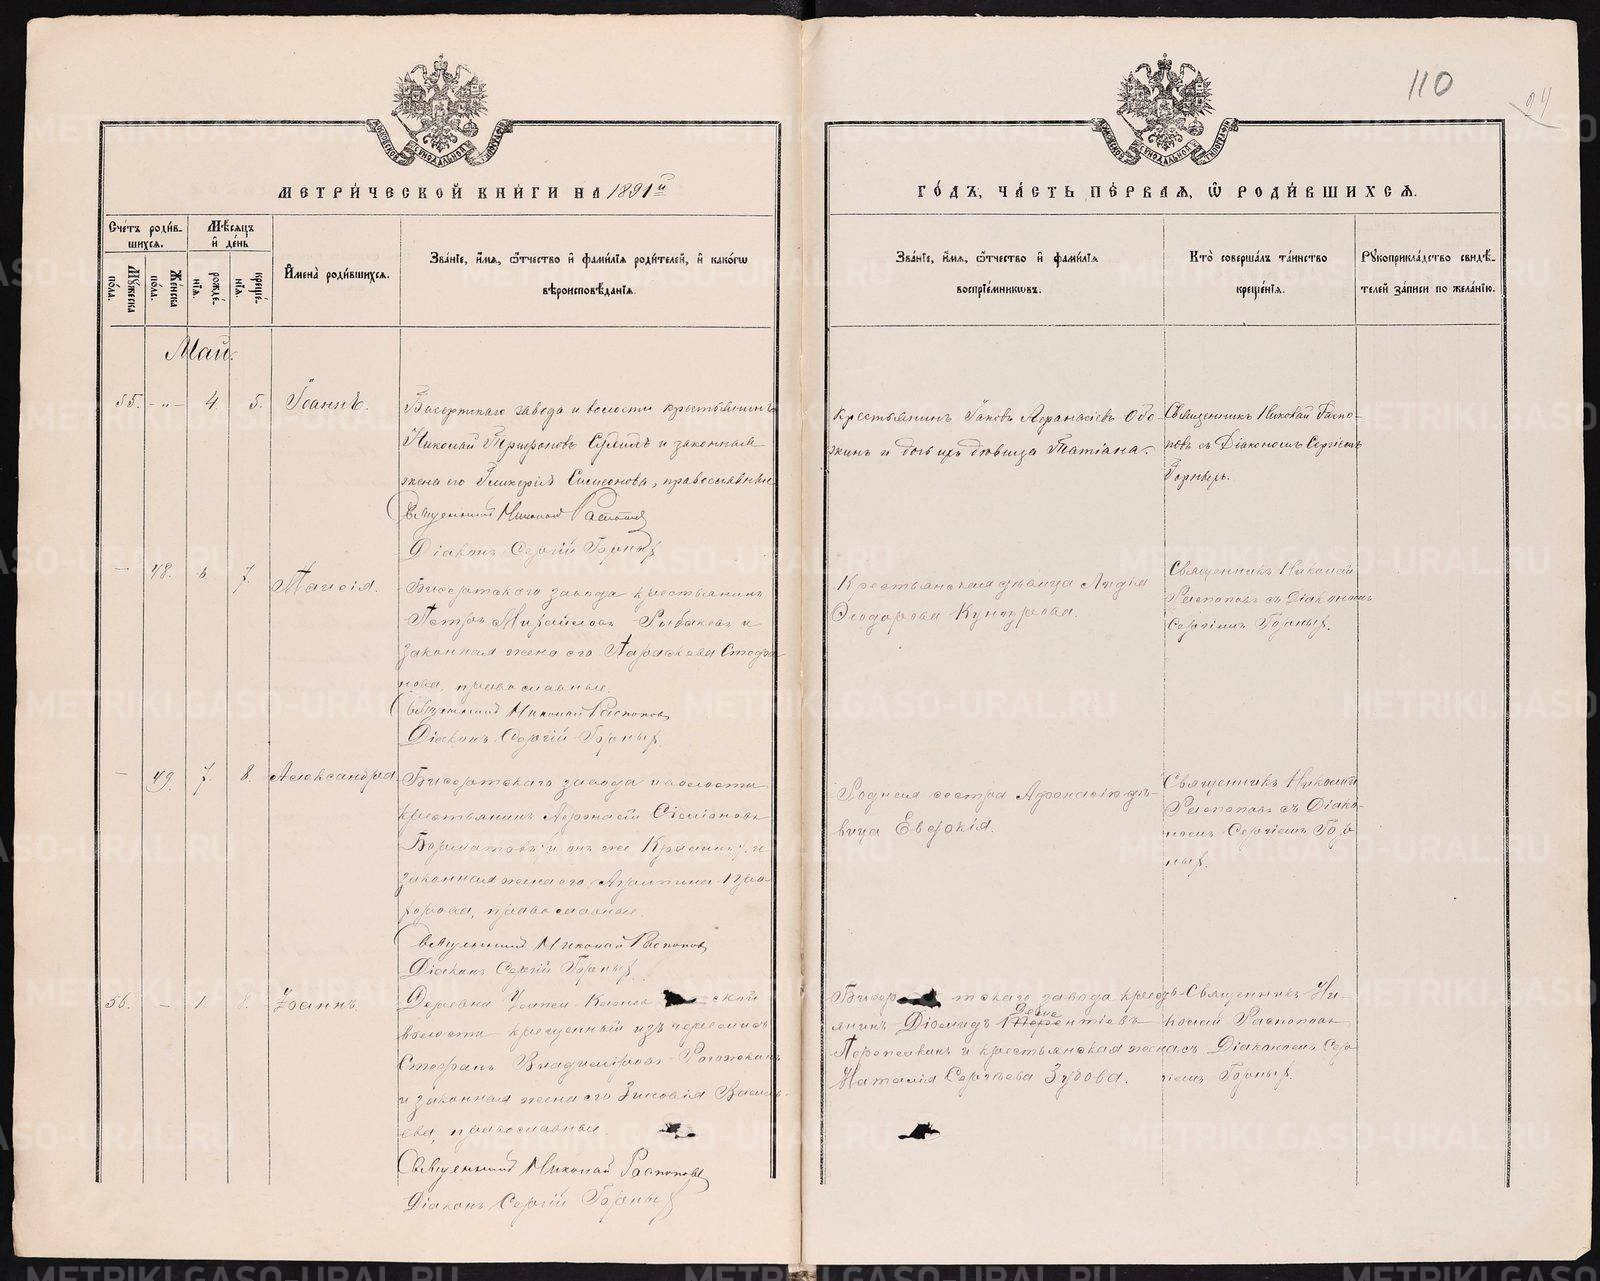 110
24
МЕТРИ́ЧЕСКОЙ КНИ́ГИ НА 1891й
ГО́ДЪ, ЧА́СТЬ ПЕ́РВАЯ, Ѿ РОДИ́ВШИХСЯ.
Сче́тъ роди́в-
шихся.
Мѣ́сяцъ
и̂ де́нь
Му́жеска по́ла.
Же́нска по́ла.
рожде́-
нїя.
креще́-
нїя.
И̂мена̀ роди́вшихся.
Зва́нїе, и̂́мя, ѻ҆́тчество и̂ фами́лїя роди́телей, и̂ како́гѡ
вѣроисповѣ́данїя.
Зва́нїе, и̂́мя, ѻ҆́тчество и̂ фами́лїя
воспрїе́мникѡвъ.
Кто̀ соверша́лъ та́инство
креще́нїя.
Рꙋкоприкла́дство свидѣ́-
телей за́писи по жела́нїю.
Май.
55. -„- 4. 5. Іоаннъ.
Бисертскаго завода и волости крестьянинъ
Николай Трифоновъ и законная
жена его Гликерія Симеонова, православные
Священникъ Николай Распоповъ
Діаконъ Сергій Горныхъ
крестьянинъ Іаковъ Аѳанасіевъ Обо-
жинъ и дочь ихъ дѣвица Татіана.
Священникъ Николай Распо-
повъ съ Діакономъ Сергіемъ
Горныхъ.
— 48. 6 7. Таисія.
Бисертскаго завода крестьянинъ
Петръ Михайловъ Рыбаковъ и
законная жена его Параскева Стефа
нова, православные.
Священникъ Николай Распоповъ
Діаконъ Сергій Горныхъ
Крестьянская дѣвица Лидія
Ѳеодорова Кунгурова.
Священникъ Николай
Распоповъ съ Діакономъ
Сергіемъ Горныхъ.
— 49. 7. 8. Александра
Бисертскаго завода и волости
крестьянинъ Аѳонасій Сіміоновъ
Борматовъ /: и онъ же :/ и
законная жена его Агрипина Гри-
горьева, православные.
Священникъ Николай Распоповъ
Діаконъ Сергій Горныхъ
Родная сестра Афонасію дѣ-
вица Евдокія.
Священникъ Николай
Распоповъ съ Діако-
номъ Сергіемъ Гор-
ныхъ.
56. — 1. 8. Іоаннъ
Деревни ской
волости крещенный изъ черемисъ
Стефанъ Владиміровъ
и законная жена его Зиновія Василь-
ева, православные.
Священникъ Николай Распоповъ
Діаконъ Сергій Горныхъ
Бисертскаго завода кресть-
янинъ Діомидъ
Перепелкинъ и крестьянская жена
Наталія Сергѣева Зубова.
Священникъ Ни-
колай Распоповъ
съ Діакономъ Сер-
гіемъ Горныхъ.